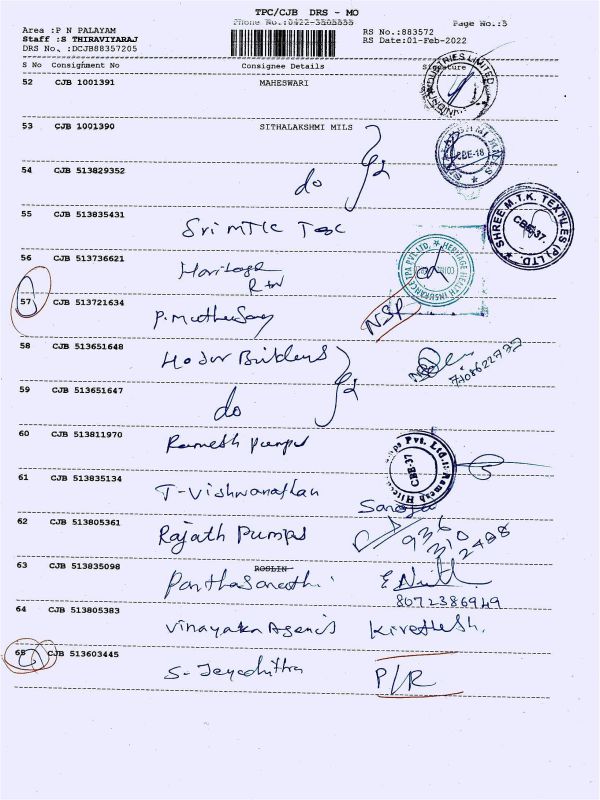 TPC/CJB DRS - MO
Phone No.:0422-3505555
Page No.:3
Area :P N PALAYAM
Staff :S THIRAVIYARAJ
DRS No. :DCJB88357205
RS No.:883572
RS Date:01-Feb-2022
S No Consignment No Consignee Details Signature
52 CJB 1001391 MAHESWARI
53 CJB 1001390 SITHALAKSHMI MILS
CBE-18
54 CJB 513829352 do
55 CJB 513835431 Sri MTK Tex
SHREE M.T.K. TEXTILES (P) LTD.
CBE-37.
56 CJB 513736621 Heritage
HERITAGE HEALTH INSURANCE TPA PVT. LTD.
57 CJB 513721634 P. Muthusamy NSP
58 CJB 513651648 Builders
59 CJB 513651647 do
60 CJB 513811970 Ramesh Pumps
CBE-37
61 CJB 513835134 T-Vishwanathan
62 CJB 513805361 Rajath Pumps 936
310
2498
63 CJB 513835098 ROSLIN
Panthasarathi
8072386949
64 CJB 513805383 Vinayaka Agencis Kirethesh.
65 CJB 513603445 S- Jeyachitra P/R